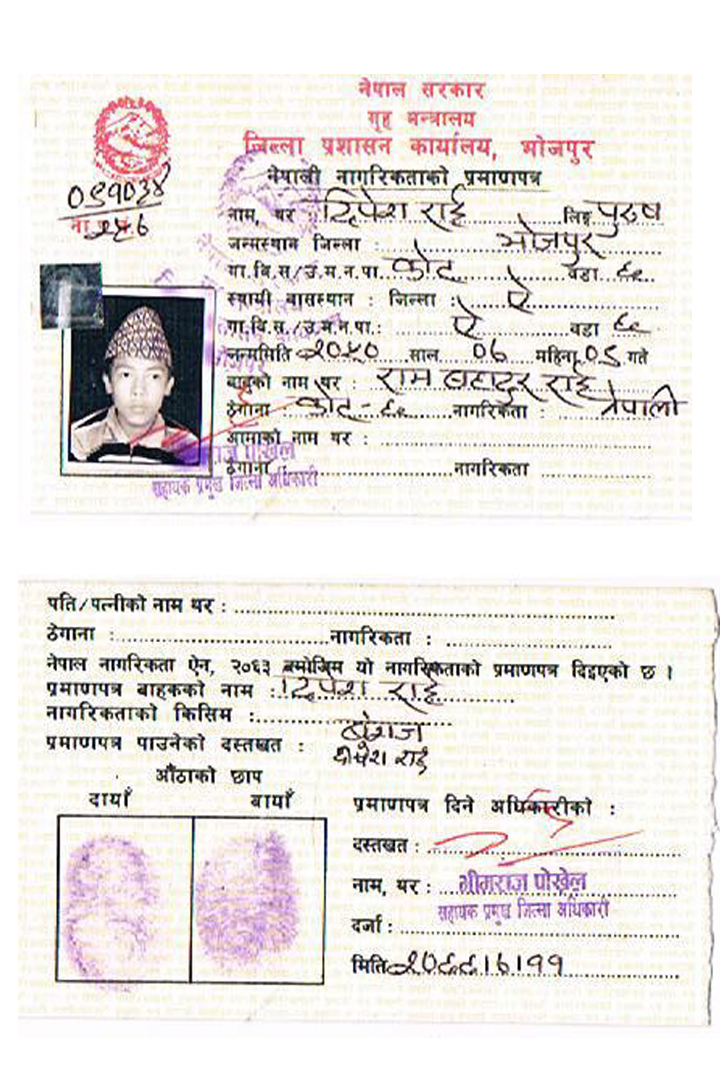 नेपाल सरकार
गृह मन्त्रालय
जिल्ला प्रशासन कार्यालय, भोजपुर
नेपाली नागरिकताको प्रमाणपत्र
नाम, थर : दिपेश राई लिङ्ग पुरुष
जन्मस्थान जिल्ला : भोजपुर
गा.वि.स/उ.म.न.पा. कोट वडा
स्थायी बासस्थान : जिल्ला : ऐ
गा.वि.स./उ.म.न.पा.: ऐ वडा
जन्ममिति २०५० साल ०७ महिना ०९ गते
बाबुको नाम थर : राम बहादुर राई
ठेगाना : कोट नागरिकता : नेपाली
आमाको नाम थर :
ठेगाना : नागरिकता
सहायक प्रमुख जिल्ला अधिकारी
पति/पत्नीको नाम थर :
ठेगाना : नागरिकता :
नेपाल नागरिकता ऐन, २०६३ बमोजिम यो नागरिकताको प्रमाणपत्र दिइएको छ ।
प्रमाणपत्र बाहकको नाम : दिपेश राई
नागरिकताको किसिम : बंशज
प्रमाणपत्र पाउनेको दस्तखत : दिपेश राई
औंठाको छाप
दायाँ बायाँ
प्रमाणपत्र दिने अधिकारीको :
दस्तखत :
नाम, थर : भीमराज पोखेल
सहायक प्रमुख जिल्ला अधिकारी
दर्जा :
मिति